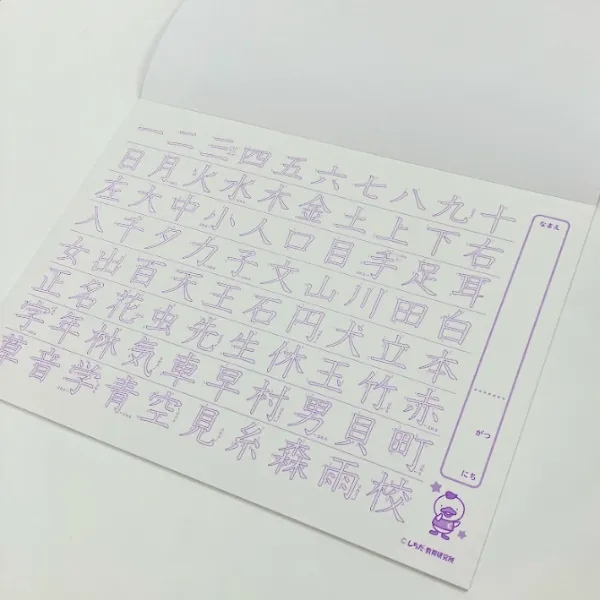 一二三四五六七八九十
日月火水木金土上下右
左大中小人口目手足耳
入千夕力子文山川田白
女出百天王石円犬立本
正名花虫先生休玉竹赤
字年林気車早村男貝町
草音学青空見糸森雨校
なまえ
がつ
にち
©しちだ・教育研究所